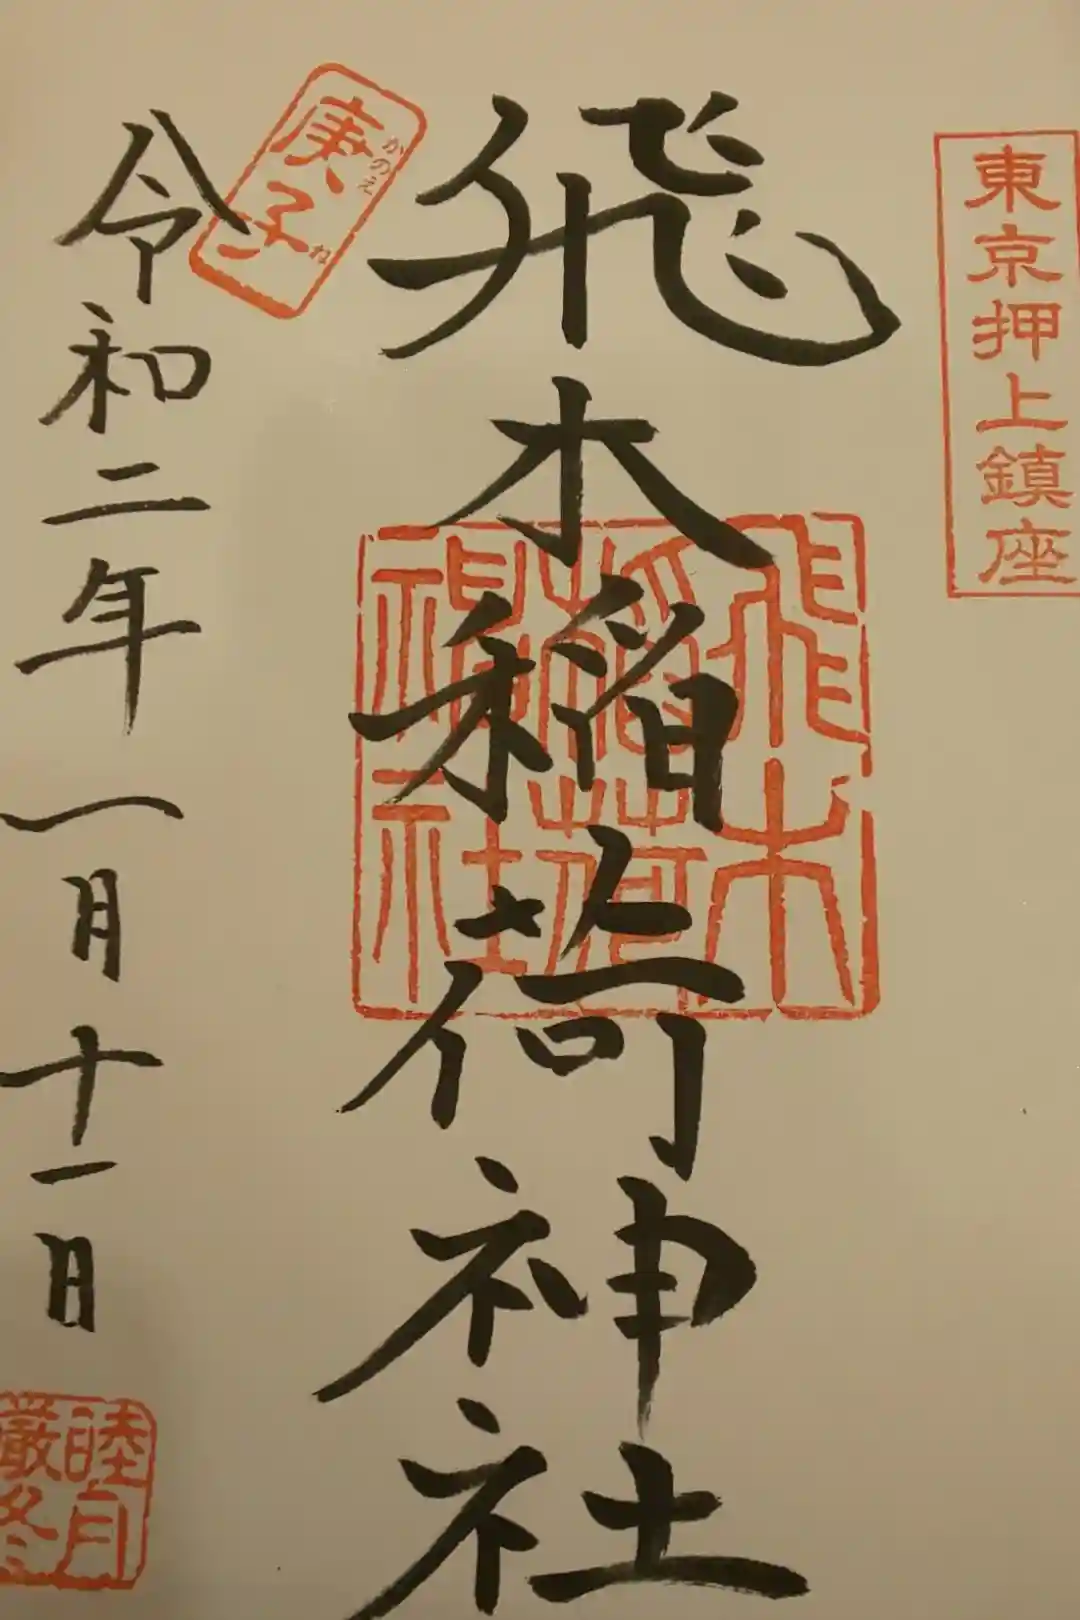 東京押上鎮座
飛木稲荷神社
飛木
稲荷
神社
庚子
かのえ
ね
令和二年一月十一日
睦月
厳冬